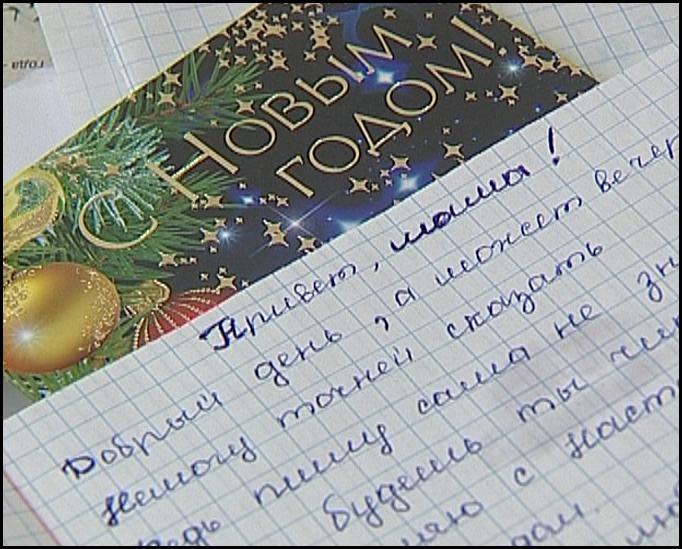 года -
С Новым
годом!
Привет, мама!
Добрый день, а может вечер
Немогу точней сказать
Ведь пишу сама не зн
будешь ты чит
с наст